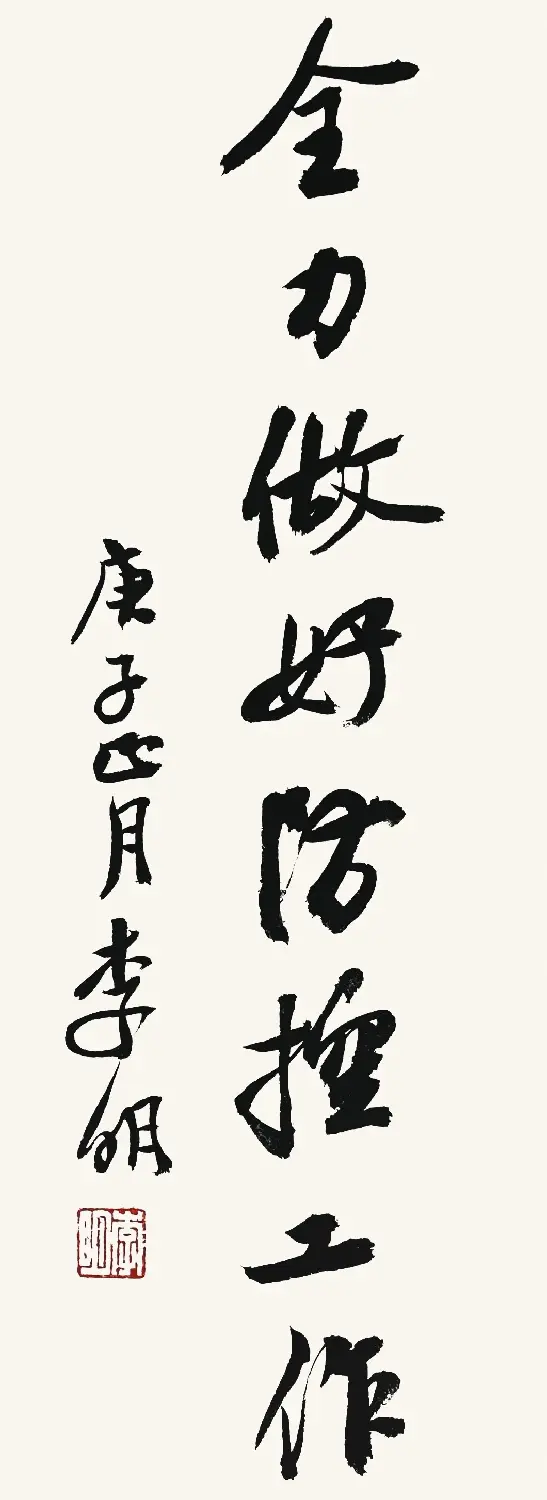 全力做好防控工作
庚子正月李明
李明